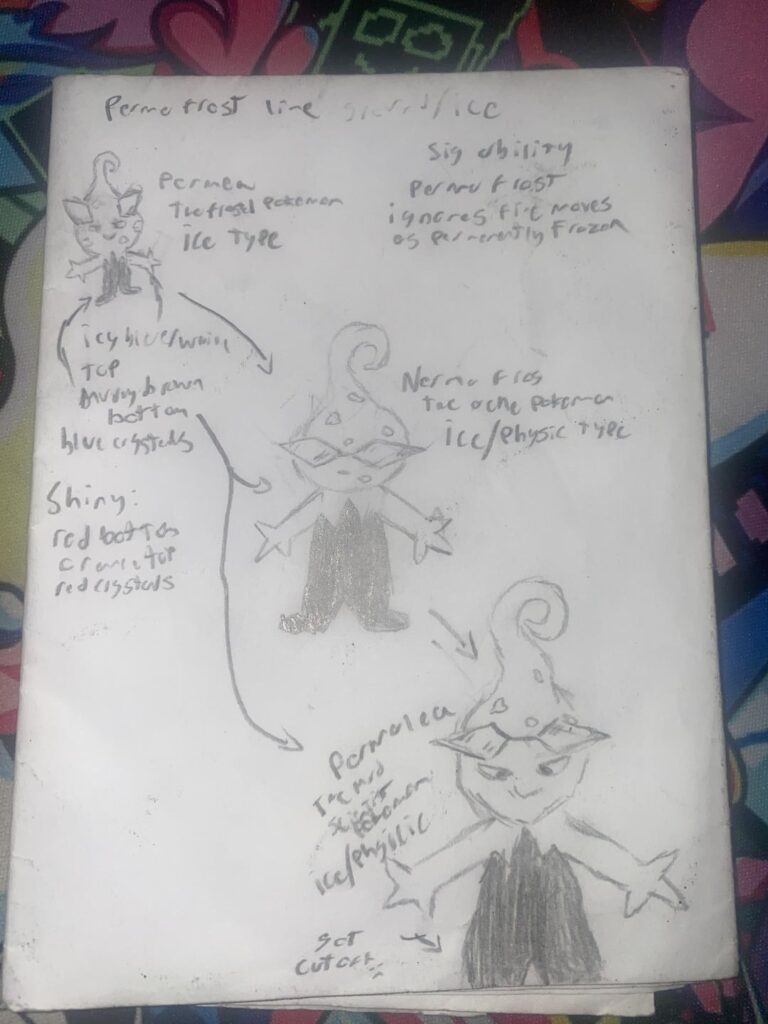 Permafrost line ground/ice
Sig ability
Permafrost
ignores fire moves
as permenently frozen
Permea
The frosd Pokemon
ice Type
icy blue/white
Top
brown
bottom
blue crystals
Shiny:
red bottom
orange top
red crystals
Nermafros
The ache Pokemon
ice/Physic Type
Permalea
The mad
Pokemon
ice/
got
cut off